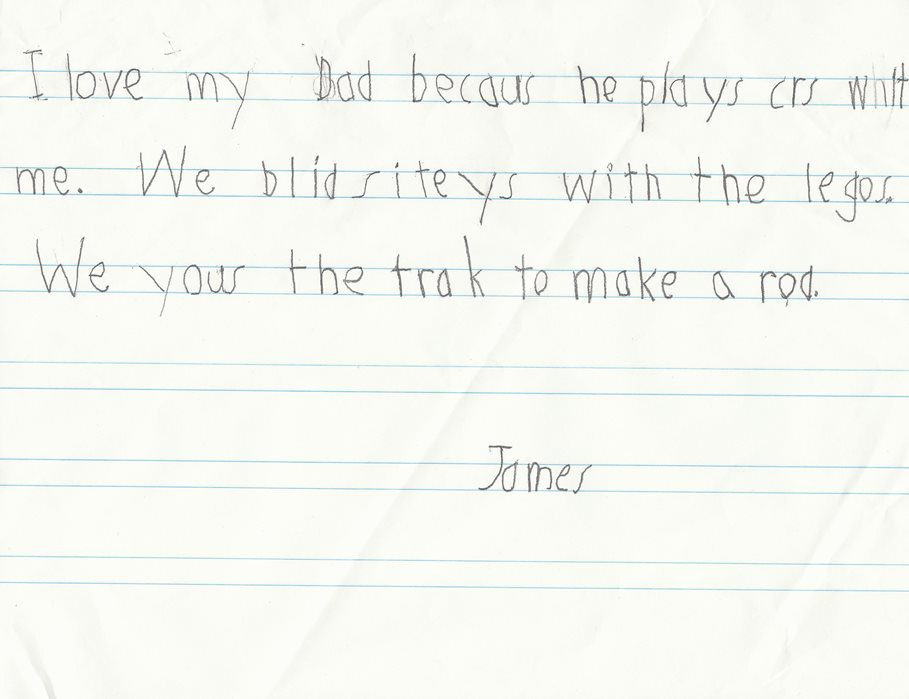 I love my Dad becaus he plays crs whit
me. We blid siteys with the legos.
We yous the trak to make a rod.
James